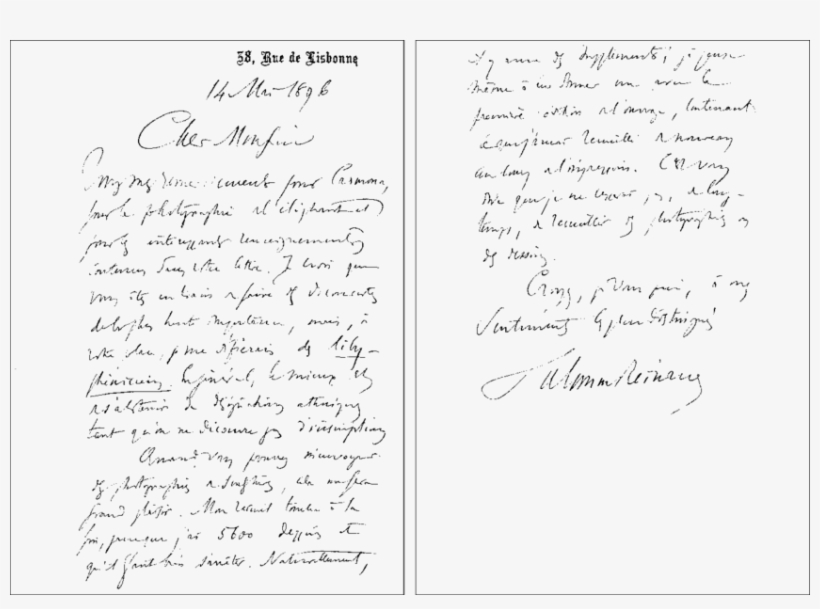 38, Rue de Lisbonne
14 Mai 1896
Cher Monsieur
Mes remerciements pour Carmona,
pour la photographie de l'éléphant et
pour les intéressants renseignements
contenus dans votre lettre. Je crois que
vous êtes en train de faire des découvertes
de la plus haute importance, mais, à
votre place, je me défierais des liby-
phéniciens. En général, le mieux est
de s'abstenir de désignations ethniques
tant qu'on ne découvre pas d'inscriptions
Quand vous pourrez m'envoyer
des photographies de sculptures, cela me fera
grand plaisir. Mon recueil touche à la
fin, puisque j'ai 5600 dessins et
qu'il faut bien s'arrêter. Naturellement,
il y aura des suppléments; je pense
même à en donner un avec la
première édition de l'ouvrage, contenant
ce que j'aurai recueilli de nouveau
au cours de l'impression. C'est vous
dire que je ne cesserai pas, de long-
temps, de recueillir des photographies et
des dessins.
Croyez, je vous prie, à mes
sentiments les plus distingués
Salomon Reinach